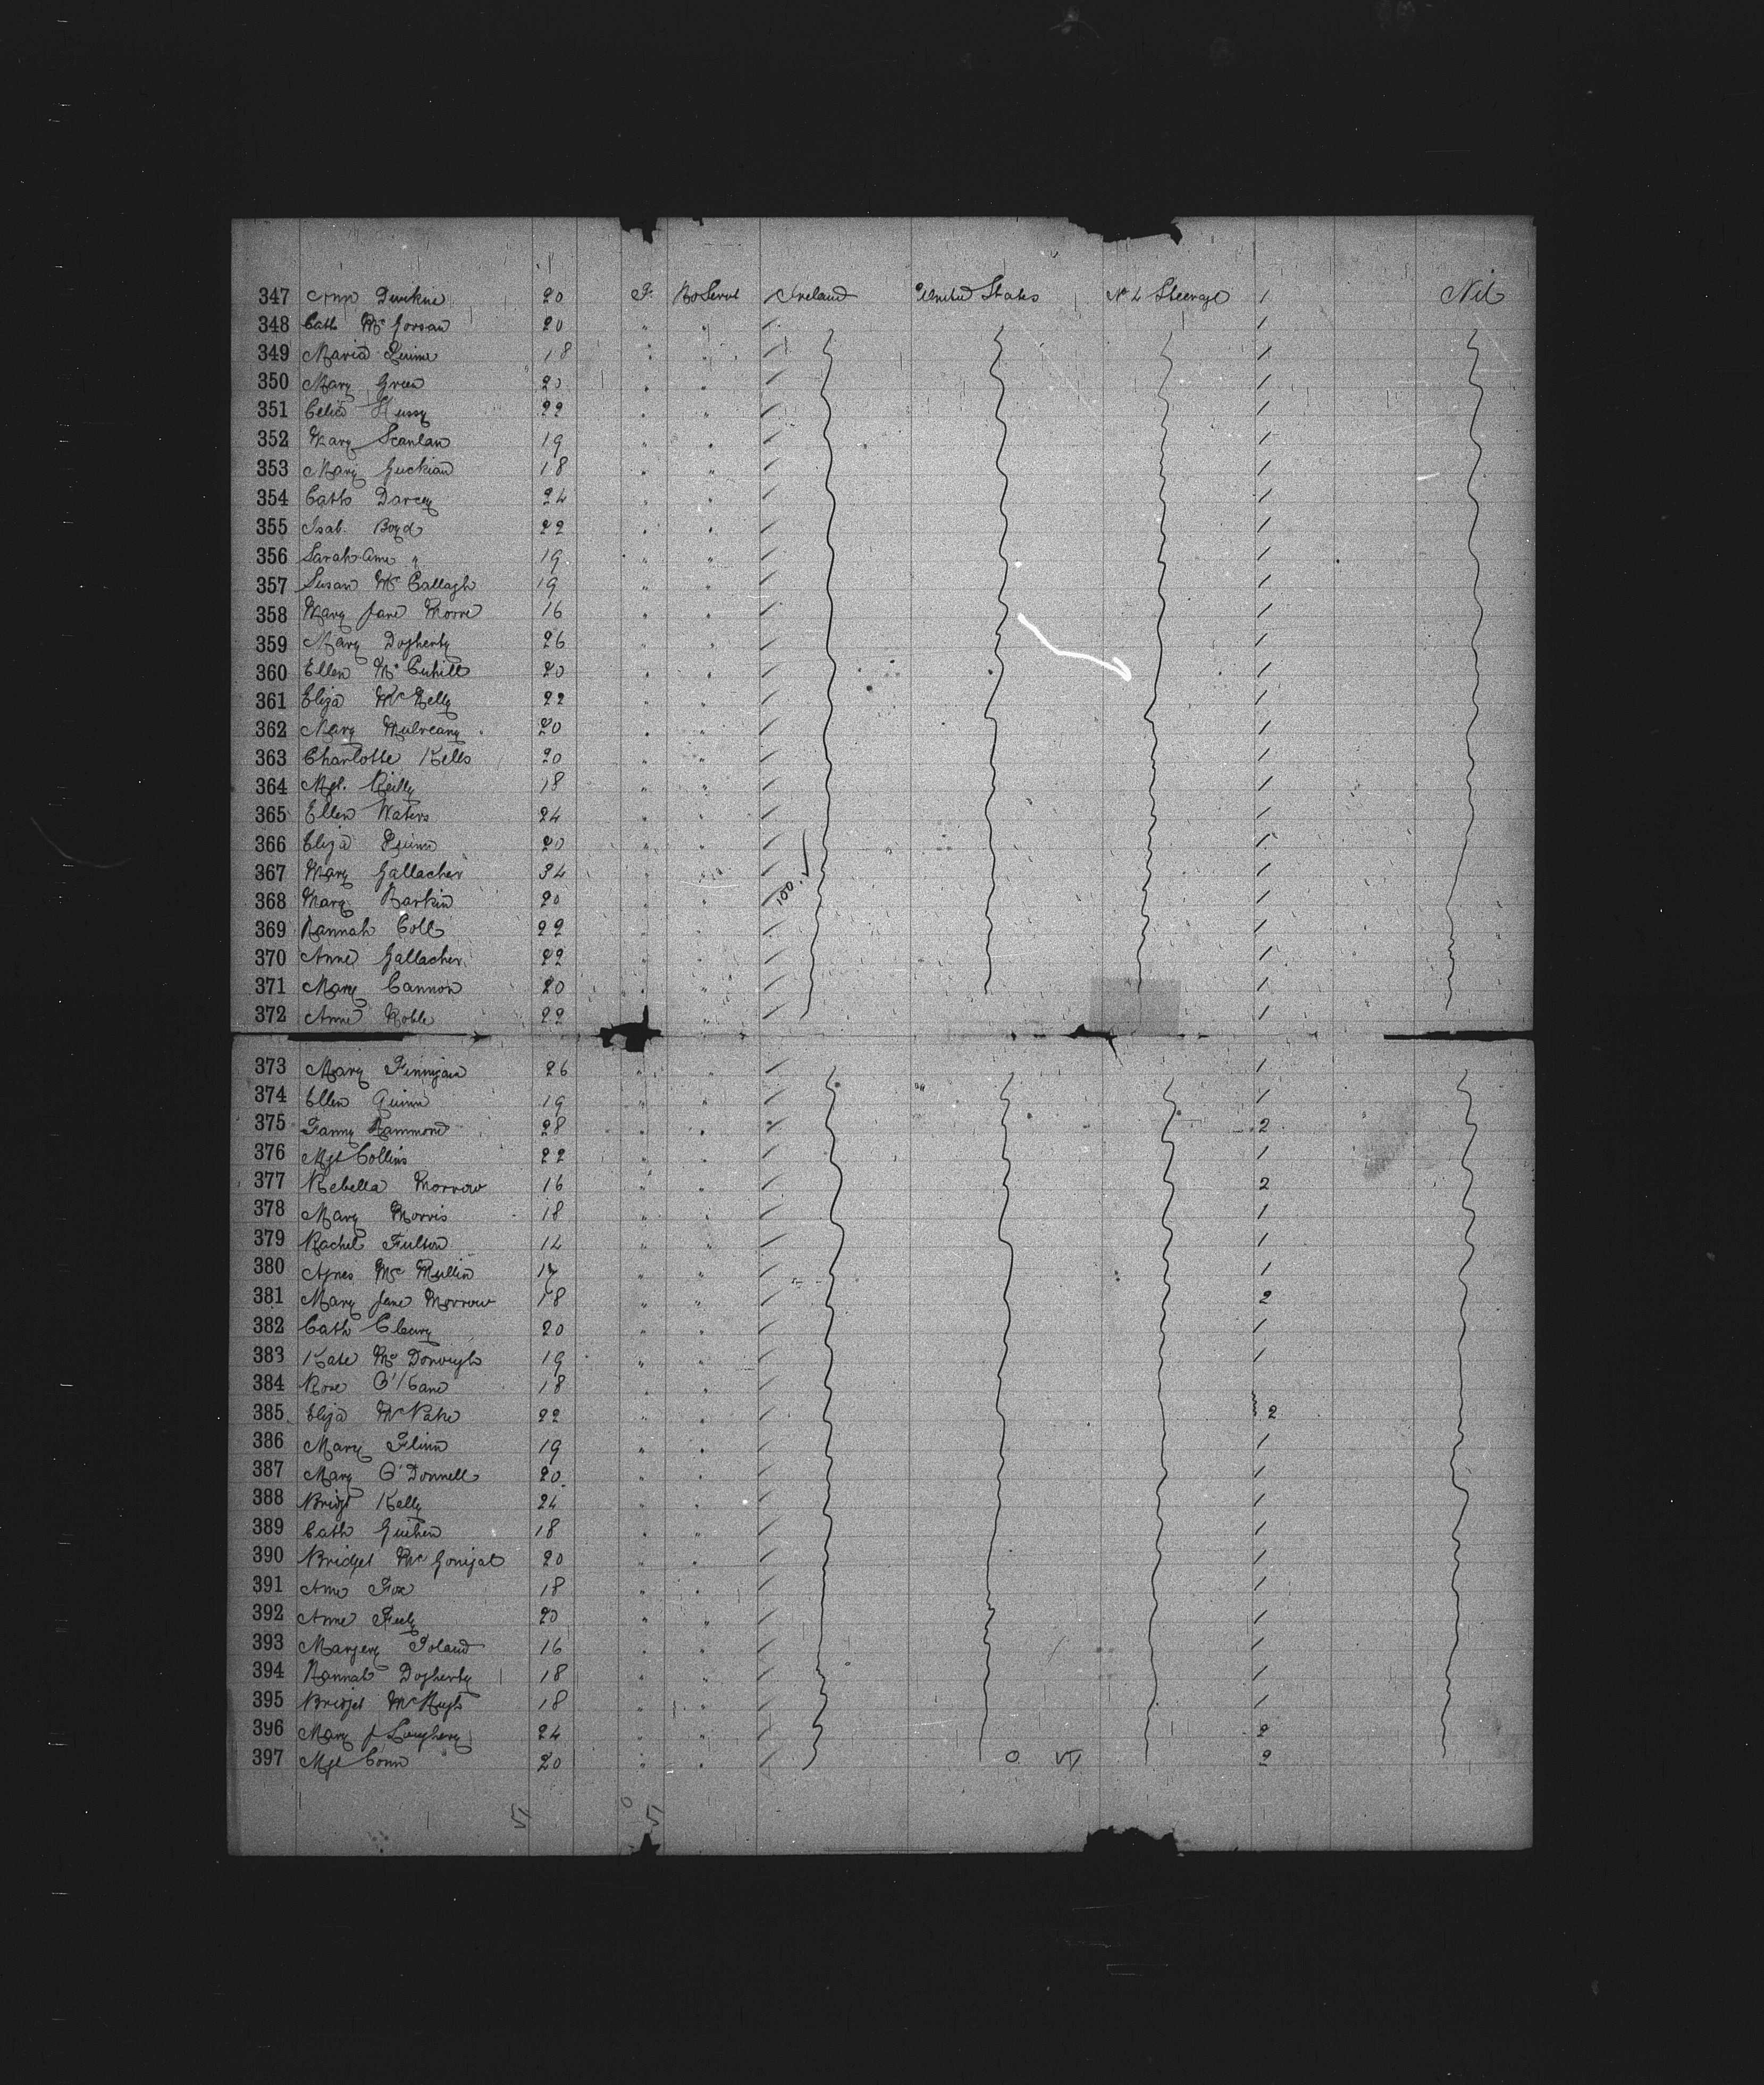 347 Ann Durkin 20 F. Ho Servt Ireland United States No 4 Steerage 1 Nil
348 Cath 20 " " 1
349 Maria Quinn 18 " " 1
350 Mary Green 20 " " 1
351 Celia Hussy 22 " " 1
352 Mary Scanlan 19 " " 1
353 Mary Guckian 18 " " 1
354 Cath Darcy 24 " " 1
355 Isab. Boyd 22 " " 1
356 Sarah Ann " 19 " " 1
357 Susan Mc Callagh 19 " " 1
358 Mary Jane Moore 16 " " 1
359 Mary Dogherty 26 " " 1
360 Ellen Mc Cahill 20 " " 1
361 Eliza Mc Nelly 22 " " 1
362 Mary Mulreany 20 " " 1
363 Charlotte Kells 20 " " 1
364 Mgt. Reilly 18 " " 1
365 Ellen Waters 24 " " 1
366 Eliza Quinn 20 " " 1
367 Mary Gallacher 34 " " 1
368 Mary Harkin 20 " " 100. √ 1
369 Hannah Coll 22 " " 1
370 Anne Gallacher 22 " " 1
371 Mary Cannon 20 " " 1
372 Anne Noble 22 " " 1
373 Mary Finnigan 26 " " 1
374 Ellen Quinn 19 " " 1
375 Fanny Hammond 28 " " 2
376 Mgt Collins 22 " " 1
377 Rebella Morrow 16 " " 2
378 Mary Morris 18 " " 1
379 Rachel Fulton 14 " " 1
380 Agnes Mc Mullin 17 " " 1
381 Mary Jane Morrow 18 " " 2
382 Cath Cleary 20 " " 1
383 Kate Mc Donough 19 " " 1
384 Rose O'Kane 18 " "
385 Eliza Mc Hale 22 " " 2
386 Mary Flinn 19 " " 1
387 Mary O'Donnell 20 " " 1
388 Bridgt Kelly 24 " " 1
389 Cath Guihen 18 " " 1
390 Bridget Mc Gonigal 20 " " 1
391 Anne Fox 18 " " 1
392 Anne Feely 20 " " 1
393 Margery Toland 16 " " 1
394 Hannah Dogherty 18 " " 1
395 Bridget McHugh 18 " " 1
396 Mary J Loughery 24 " " 2
397 Mgt Conn 20 " " 2